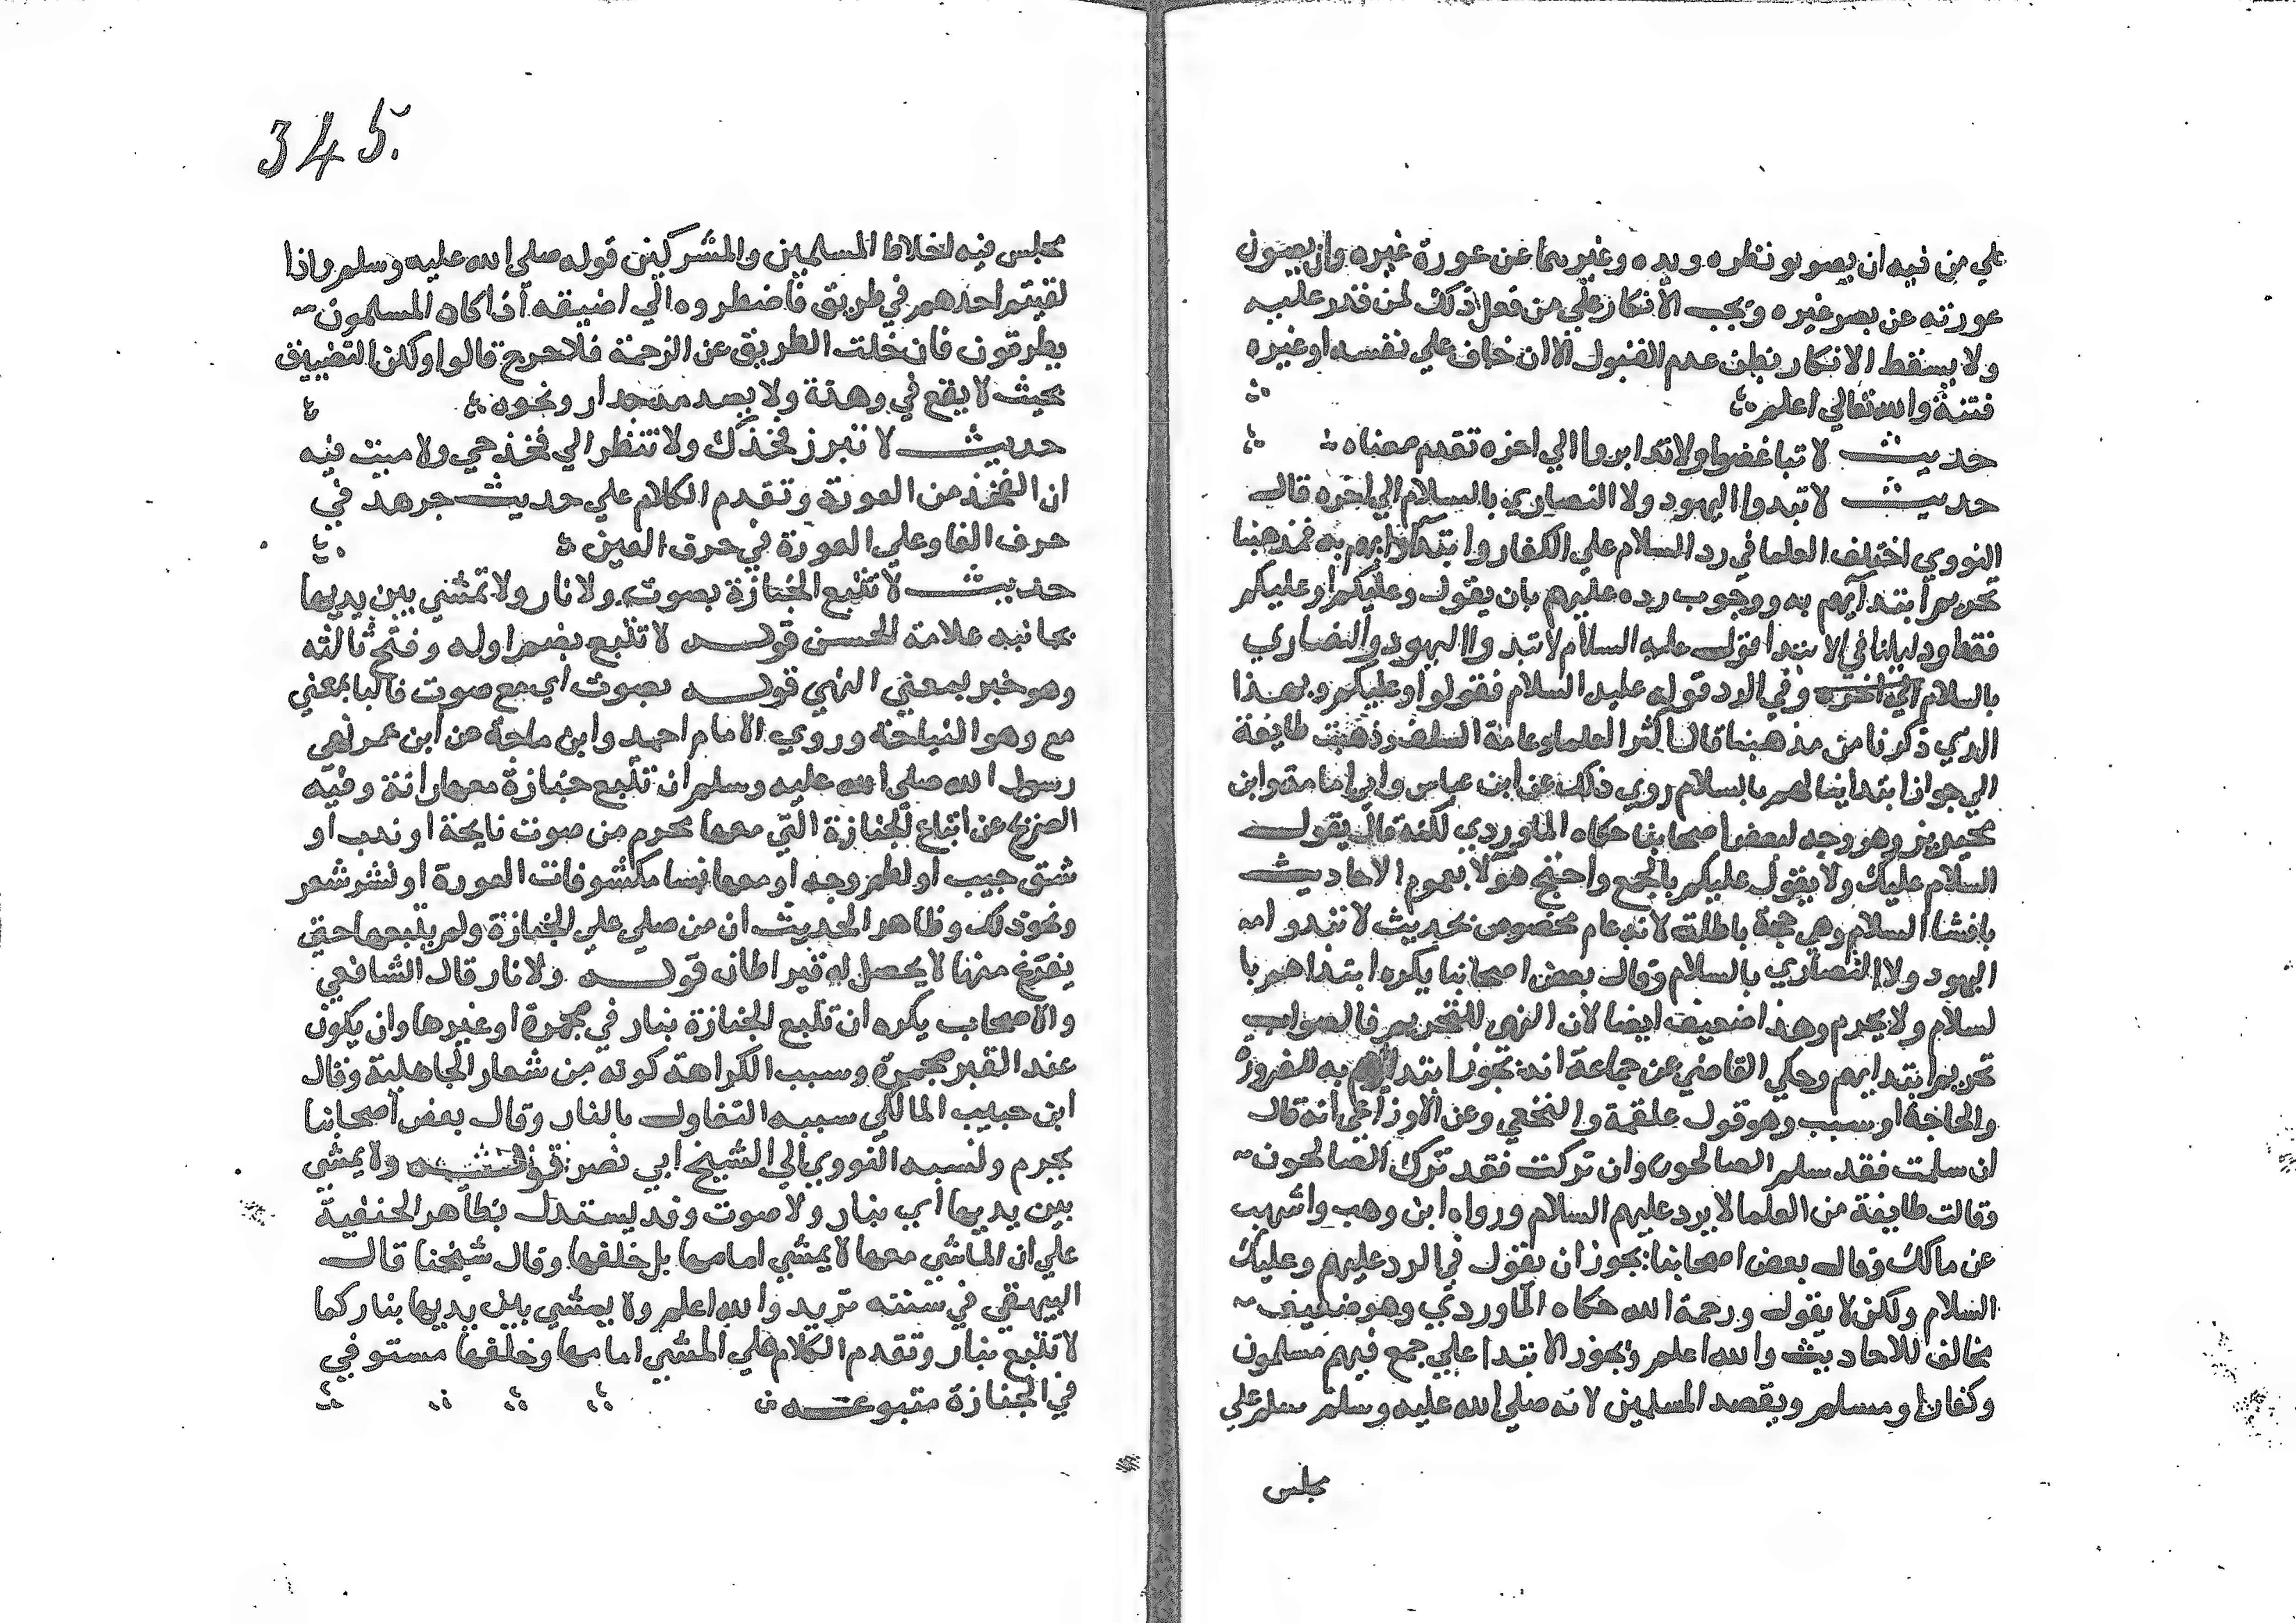 علي من فيه ان يصو بو نظره ويده وغيرهما عن عورة غيره وان يصون
عورته عن بصر غيره ويجب الانكار علي من فعل ذلك لمن قدر عليه
ولا يسقط الانكار بظن عدم القبول الا ان خاف علي نفسه او غيره
فتنة والله تعالي اعلم
حديث لا تباغضوا ولا تدابروا الي اخره تقدم معناه
حديث لا تبدوا اليهود ولا النصاري بالسلام الي اخره قال
النووي اختلف العلما في رد السلام علي الكفار وابتدايهم به فمذهبنا
تحريم ابتدآيهم به ووجوب رده عليهم بان يقول وعليكم او عليكم
فقط ودليلنا في الابتدا قوله عليه السلام لا تبدوا اليهود والنصاري
بالسلام الي اخره وفي الرد قوله عليه السلام فقولوا وعليكم وبهذا
الذي ذكرنا من مذهبنا قال اكثر العلما وعامة السلف وذهبت طايفة
الي جواز ابتداينا لهم بالسلام روي ذلك عن ابن عباس وابي امامة وابن
محيريز وهو وجه لبعض اصحابنا حكاه الماوردي لكنه قال يقول
السلام عليك ولا يقول عليكم بالجمع واحتج هولا بعموم الاحاديث
بافشا السلام وهي حجة باطلة لانه عام مخصوص بحديث لا تبدوا
اليهود ولا النصاري بالسلام وقال بعض اصحابنا يكره ابتداهم با
لسلام ولا يحرم وهذا ضعيف ايضا لان النهي للتحريم فالصواب
تحريم ابتدايهم وحكي القاضي عن جماعة انه يجوز ابتداوهم به للضرورة
والحاجة او سبب وهو قول علقمة والنخعي وعن الاوزاعي انه قال
ان سلمت فقد سلم الصالحون وان تركت فقد ترك الصالحون
وقالت طايفة من العلما لا يرد عليهم السلام ورواه ابن وهب واشهب
عن مالك وقال بعض اصحابنا يجوز ان يقول في الرد عليهم وعليك
السلام ولكن لا يقول ورحمة الله حكاه الماوردي وهو ضعيف
مخالف للاحاديث والله اعلم ويجوز الابتدا علي جمع فيهم مسلمون
وكفار او مسلم ويقصد المسلمين لانه صلي الله عليه وسلم سلم علي
مجلس
345.
مجلس فيه اخلاط المسلمين والمشركين قوله صلي الله عليه وسلم واذا
لقيتم احدهم في طريق فاضطروه الي اضيقه اذا كان المسلمون
يطرقون فان خلت الطريق عن الزحمة فلا حرج قالوا ولكن التضييق
بحيث لا يقع في وهدة ولا يصد منه جدار ونحوه
حديث لا تبرز فخذك ولا تنظر الي فخذ حي ولا ميت فيه
ان الفخذ من العورة وتقدم الكلام علي حديث جرهد في
حرف الفا وعلي العورة في حرف العين
حديث لا تتبع الجنازة بصوت ولا نار ولا تمشي بين يديها
بجانبه علامة الحسن قوله لا تتبع بضم اوله وفتح ثالثه
وهو خبر بمعني النهي قوله بصوت اي مع صوت فالبا بمعني
مع وهو النياحة وروي الامام احمد وابن ماجة عن ابن عمر نهي
رسول الله صلي الله عليه وسلم ان تتبع جنازة معها رانة وفيه
عن اتباع الجنازة التي معها محرم من صوت نايحة او ندب او
شق جيب او لطم وجه او معها نسا مكشوفات العورة او نشر شعر
ونحو ذلك وظاهر الحديث ان من صلي علي الجنازة ولم يتبعها حتي
يفرغ منها لا يحصل له قيراطان قوله ولا نار قال الشافعي
والاصحاب يكره ان تتبع الجنازة بنار في مجمرة او غيرها وان يكون
عند القبر مجمرة وسبب الكراهة كونه من شعار الجاهلية وقال
ابن حبيب المالكي سببه التفاول بالنار وقال بعض اصحابنا
يحرم ونسبه النووي الي الشيخ ابي نصر قوله ولا يمشي
بين يديها اي بنار ولا صوت وقد يستدل بظاهر الحنفية
علي ان الماشي معها لا يمشي امامها بل خلفها وقال شيخنا قال
البيهقي في سننه يريد والله اعلم ولا يمشي بين يديها بنار كما
لا تتبع بنار وتقدم الكلام علي المشي امامها وخلفها مستوفي
في الجنازة متبوعه